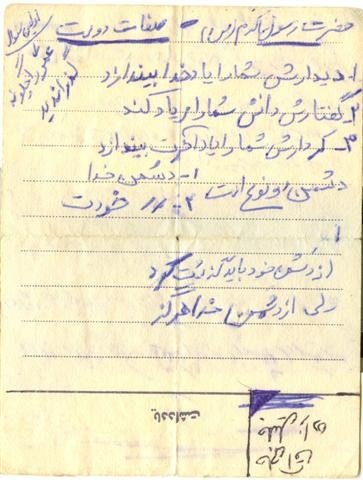 حضرت رسول اکرم (ص) - صفات دوست
۱- دیدارش شما را یاد خدا بیندازد
۲- گفتارش دانش شما را زیاد کند
۳- کردارش شما را یاد آخرت بیندازد
دشمن دو نوع است ۱- دشمن خدا
۲- // خودت
از دشمن خود باید گذشت کرد
ولی از دشمن خدا هرگز
عمرت را چگونه
گذراندید
یادداشت